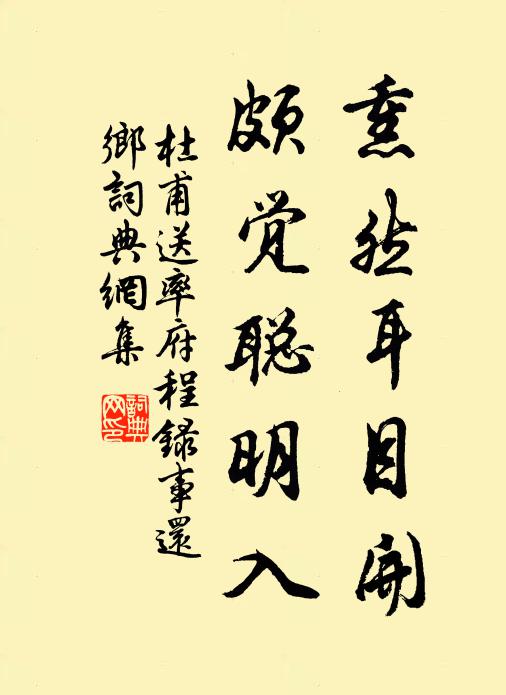 熏然耳目開
頗覚聡明入
杜甫送率府程録事還
鄉詞典網集
詞典
网印